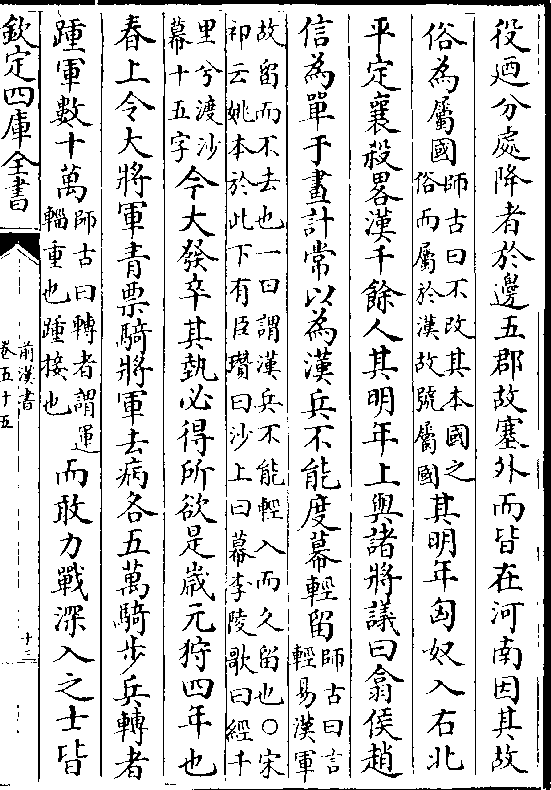 役迺分處降者於邊五郡故塞外而皆在河南因其故
俗為屬國師古曰不改其本國之
俗而屬於漢故號屬國其明年匈奴入右北
平定襄殺畧漢千餘人其明年上與諸將議曰翕侯趙
信為單于畫計常以為漢兵不能度幕輕留師古曰言
輕易漢軍
故留而不去也一曰謂漢兵不能輕入而久留也○宋
祁云姚本於此下有臣瓚曰沙上曰幕李陵歌曰經千
里兮渡沙
幕十五字今大發卒其埶必得所欲是歲元狩四年也
春上令大將軍青票騎將軍去病各五萬騎步兵轉者
踵軍數十萬師古曰轉者謂運
輜重也踵接也而敢力戰深入之士皆
欽定四庫全書
前漢書
卷五十五
十三